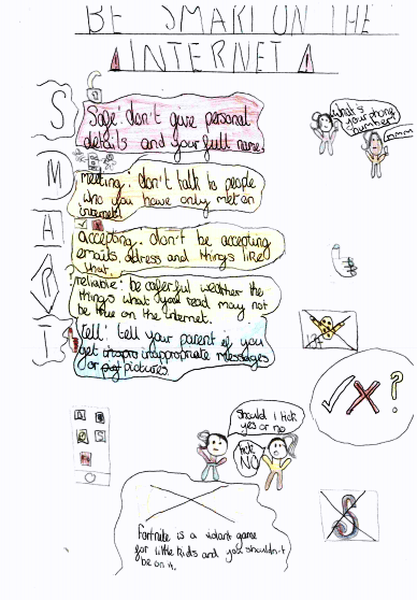 BE SMART ON THE
INTERNET
S
Safe: don't give personal
details and your full name.
M
meeting: don't talk to people
who you have only met on
internet!
A
accepting: don't be accepting
emails, address and things like
that.
R
reliable: be caferful weather the
things what you read may not
be true on the internet.
T
Tell: tell your parent if you
get inapro inappropriate messages
or pictures.
What's
your phone
number?
Should I tick
yes or no
tick
NO
?
Fortnite is a violant game
for little kids and you shouldn't
be on it.